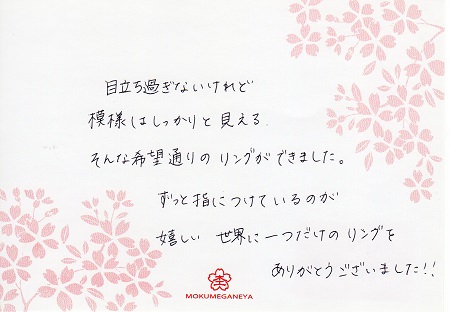 目立ち過ぎないけれど
模様はしっかりと見える
そんな希望通りのリングができました。
ずっと指につけているのが
嬉しい 世界に一つだけのリングを
ありがとうございました!!
MOKUMEGANEYA